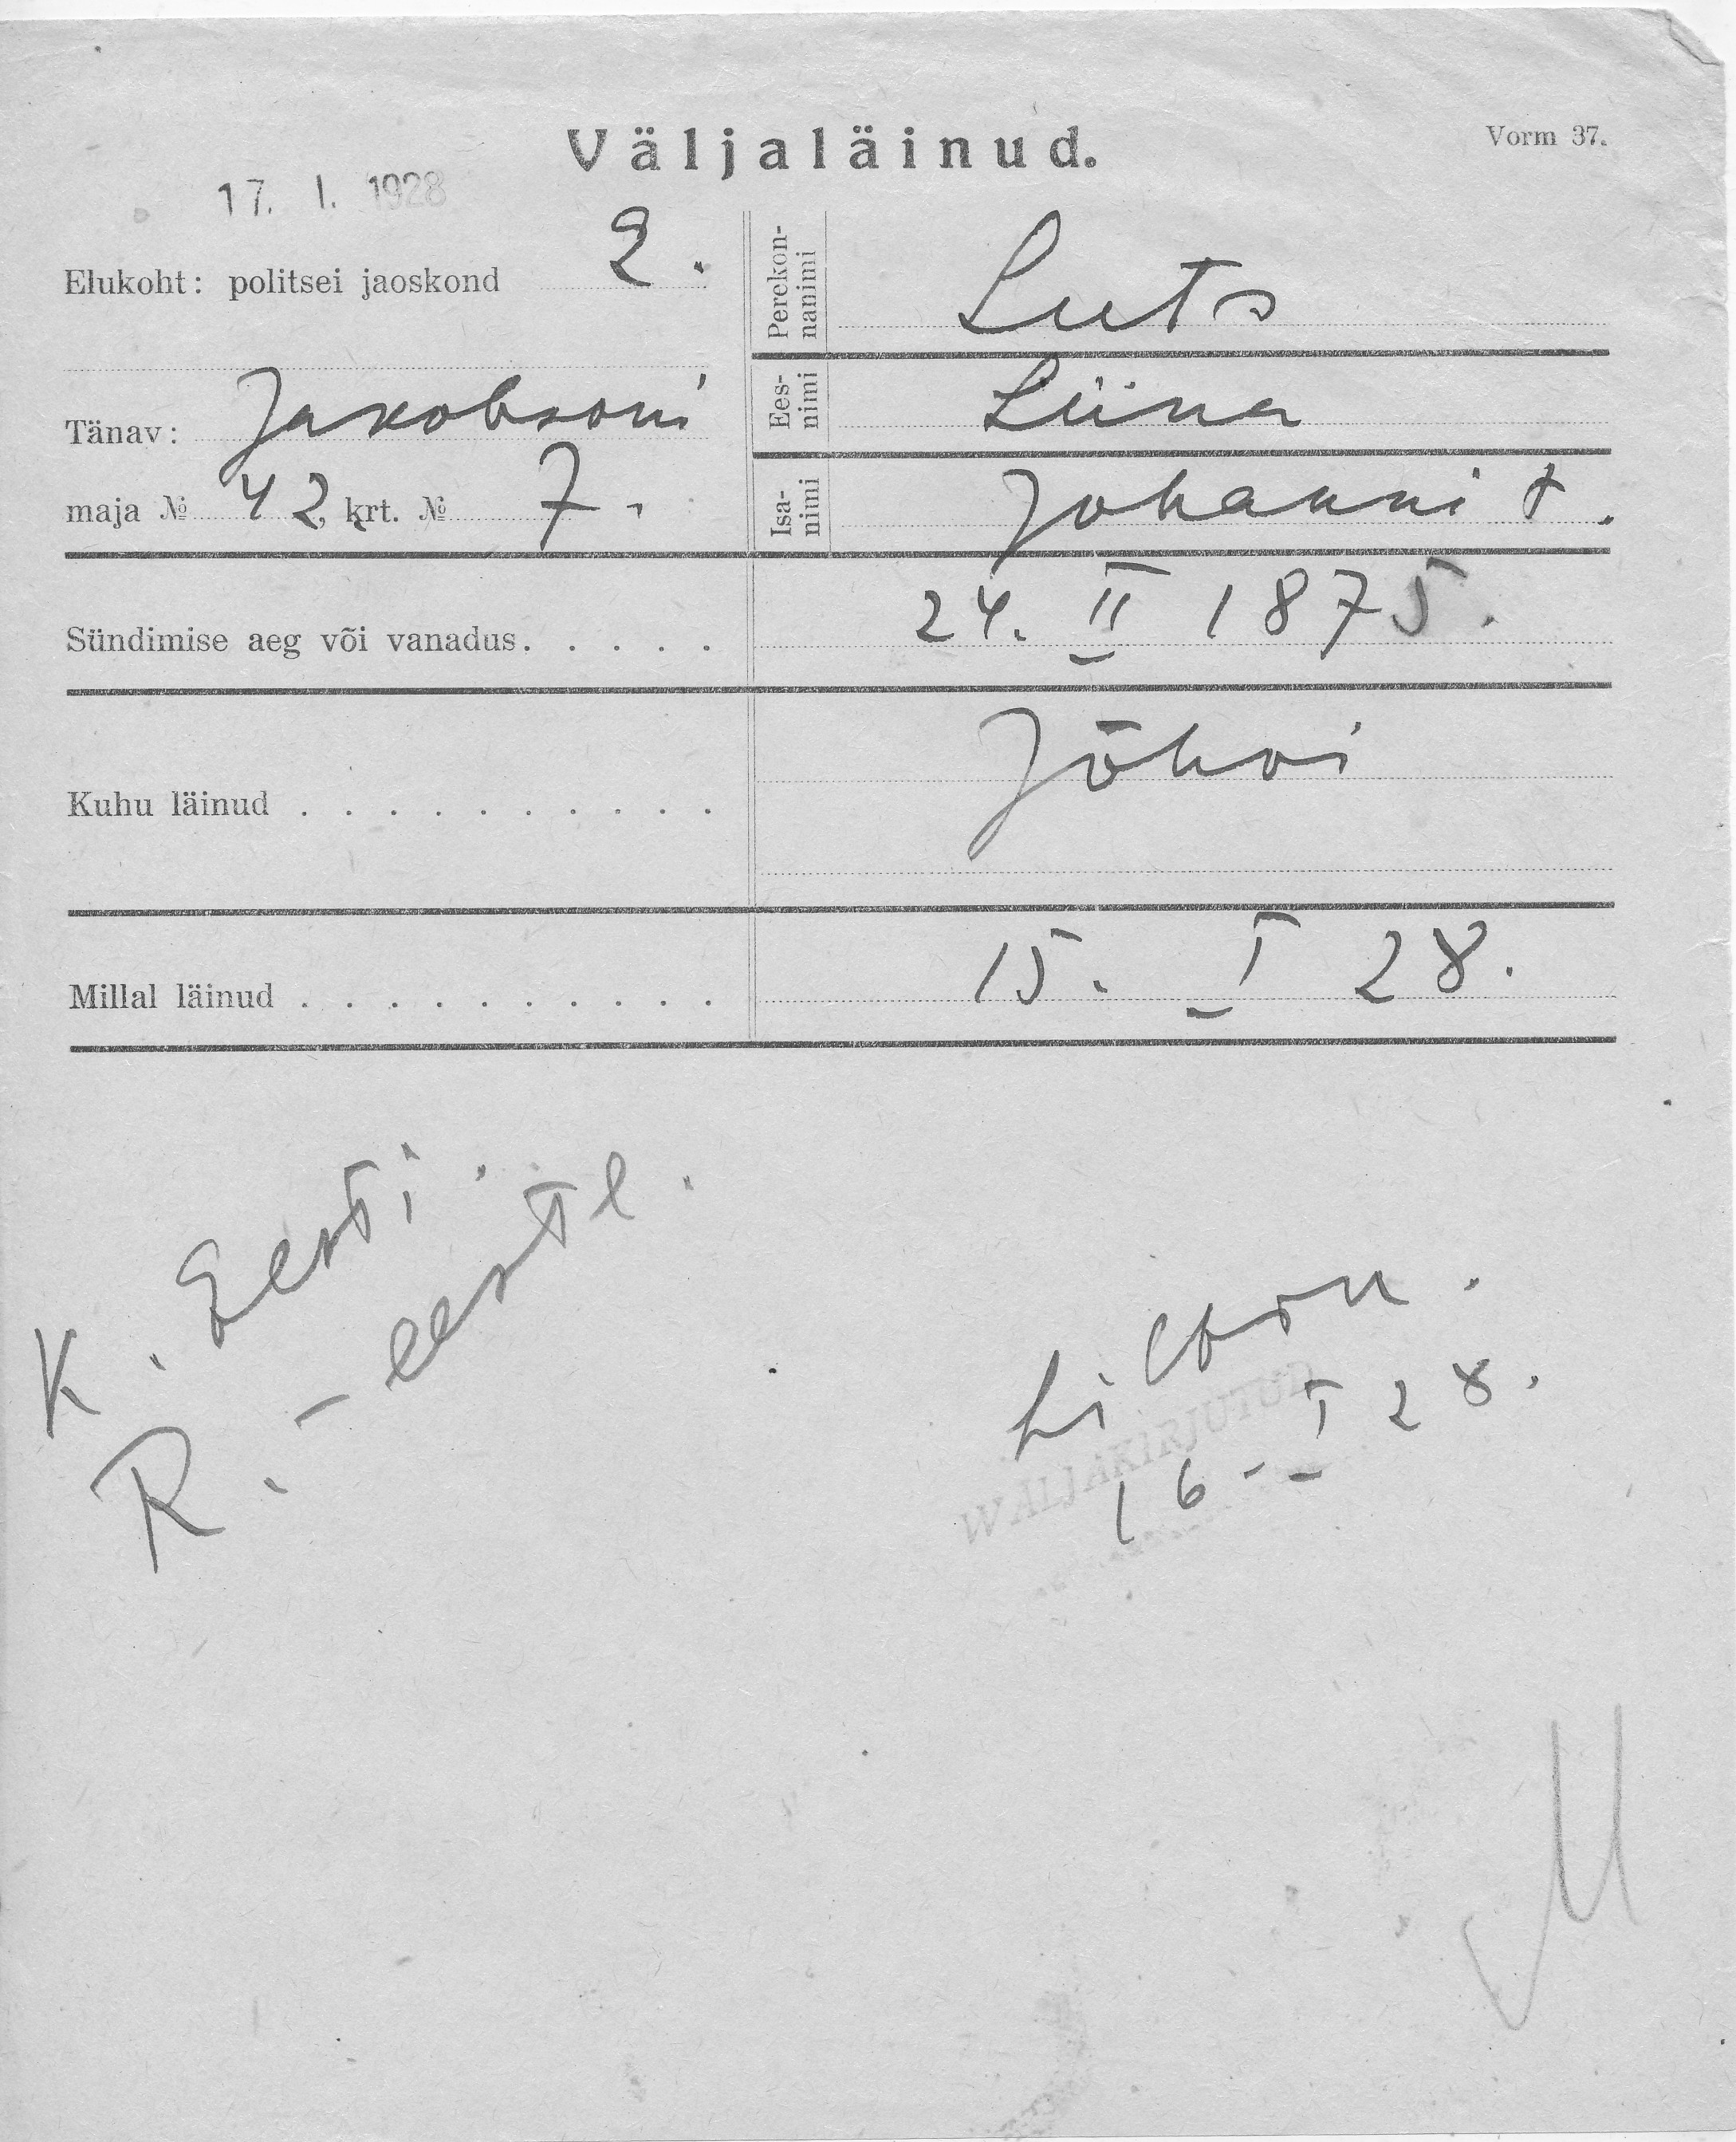 Väljaläinud.
Vorm 37.
17. I. 1928
Elukoht: politsei jaoskond 2.
Tänav: Jakobsoni
maja № 42, krt. № 7.
Perekonnanimi Luts
Eesnimi Liina
Isanimi Johanni t.
Sündimise aeg või vanadus. . . . . 24. II 1875.
Kuhu läinud . . . . . . . . . . Jõhvi
Millal läinud . . . . . . . . . . 15. I 28.
K. Eesti.
R. - eestl.
WÄLJAKIRJUTUD
16 - I 28.